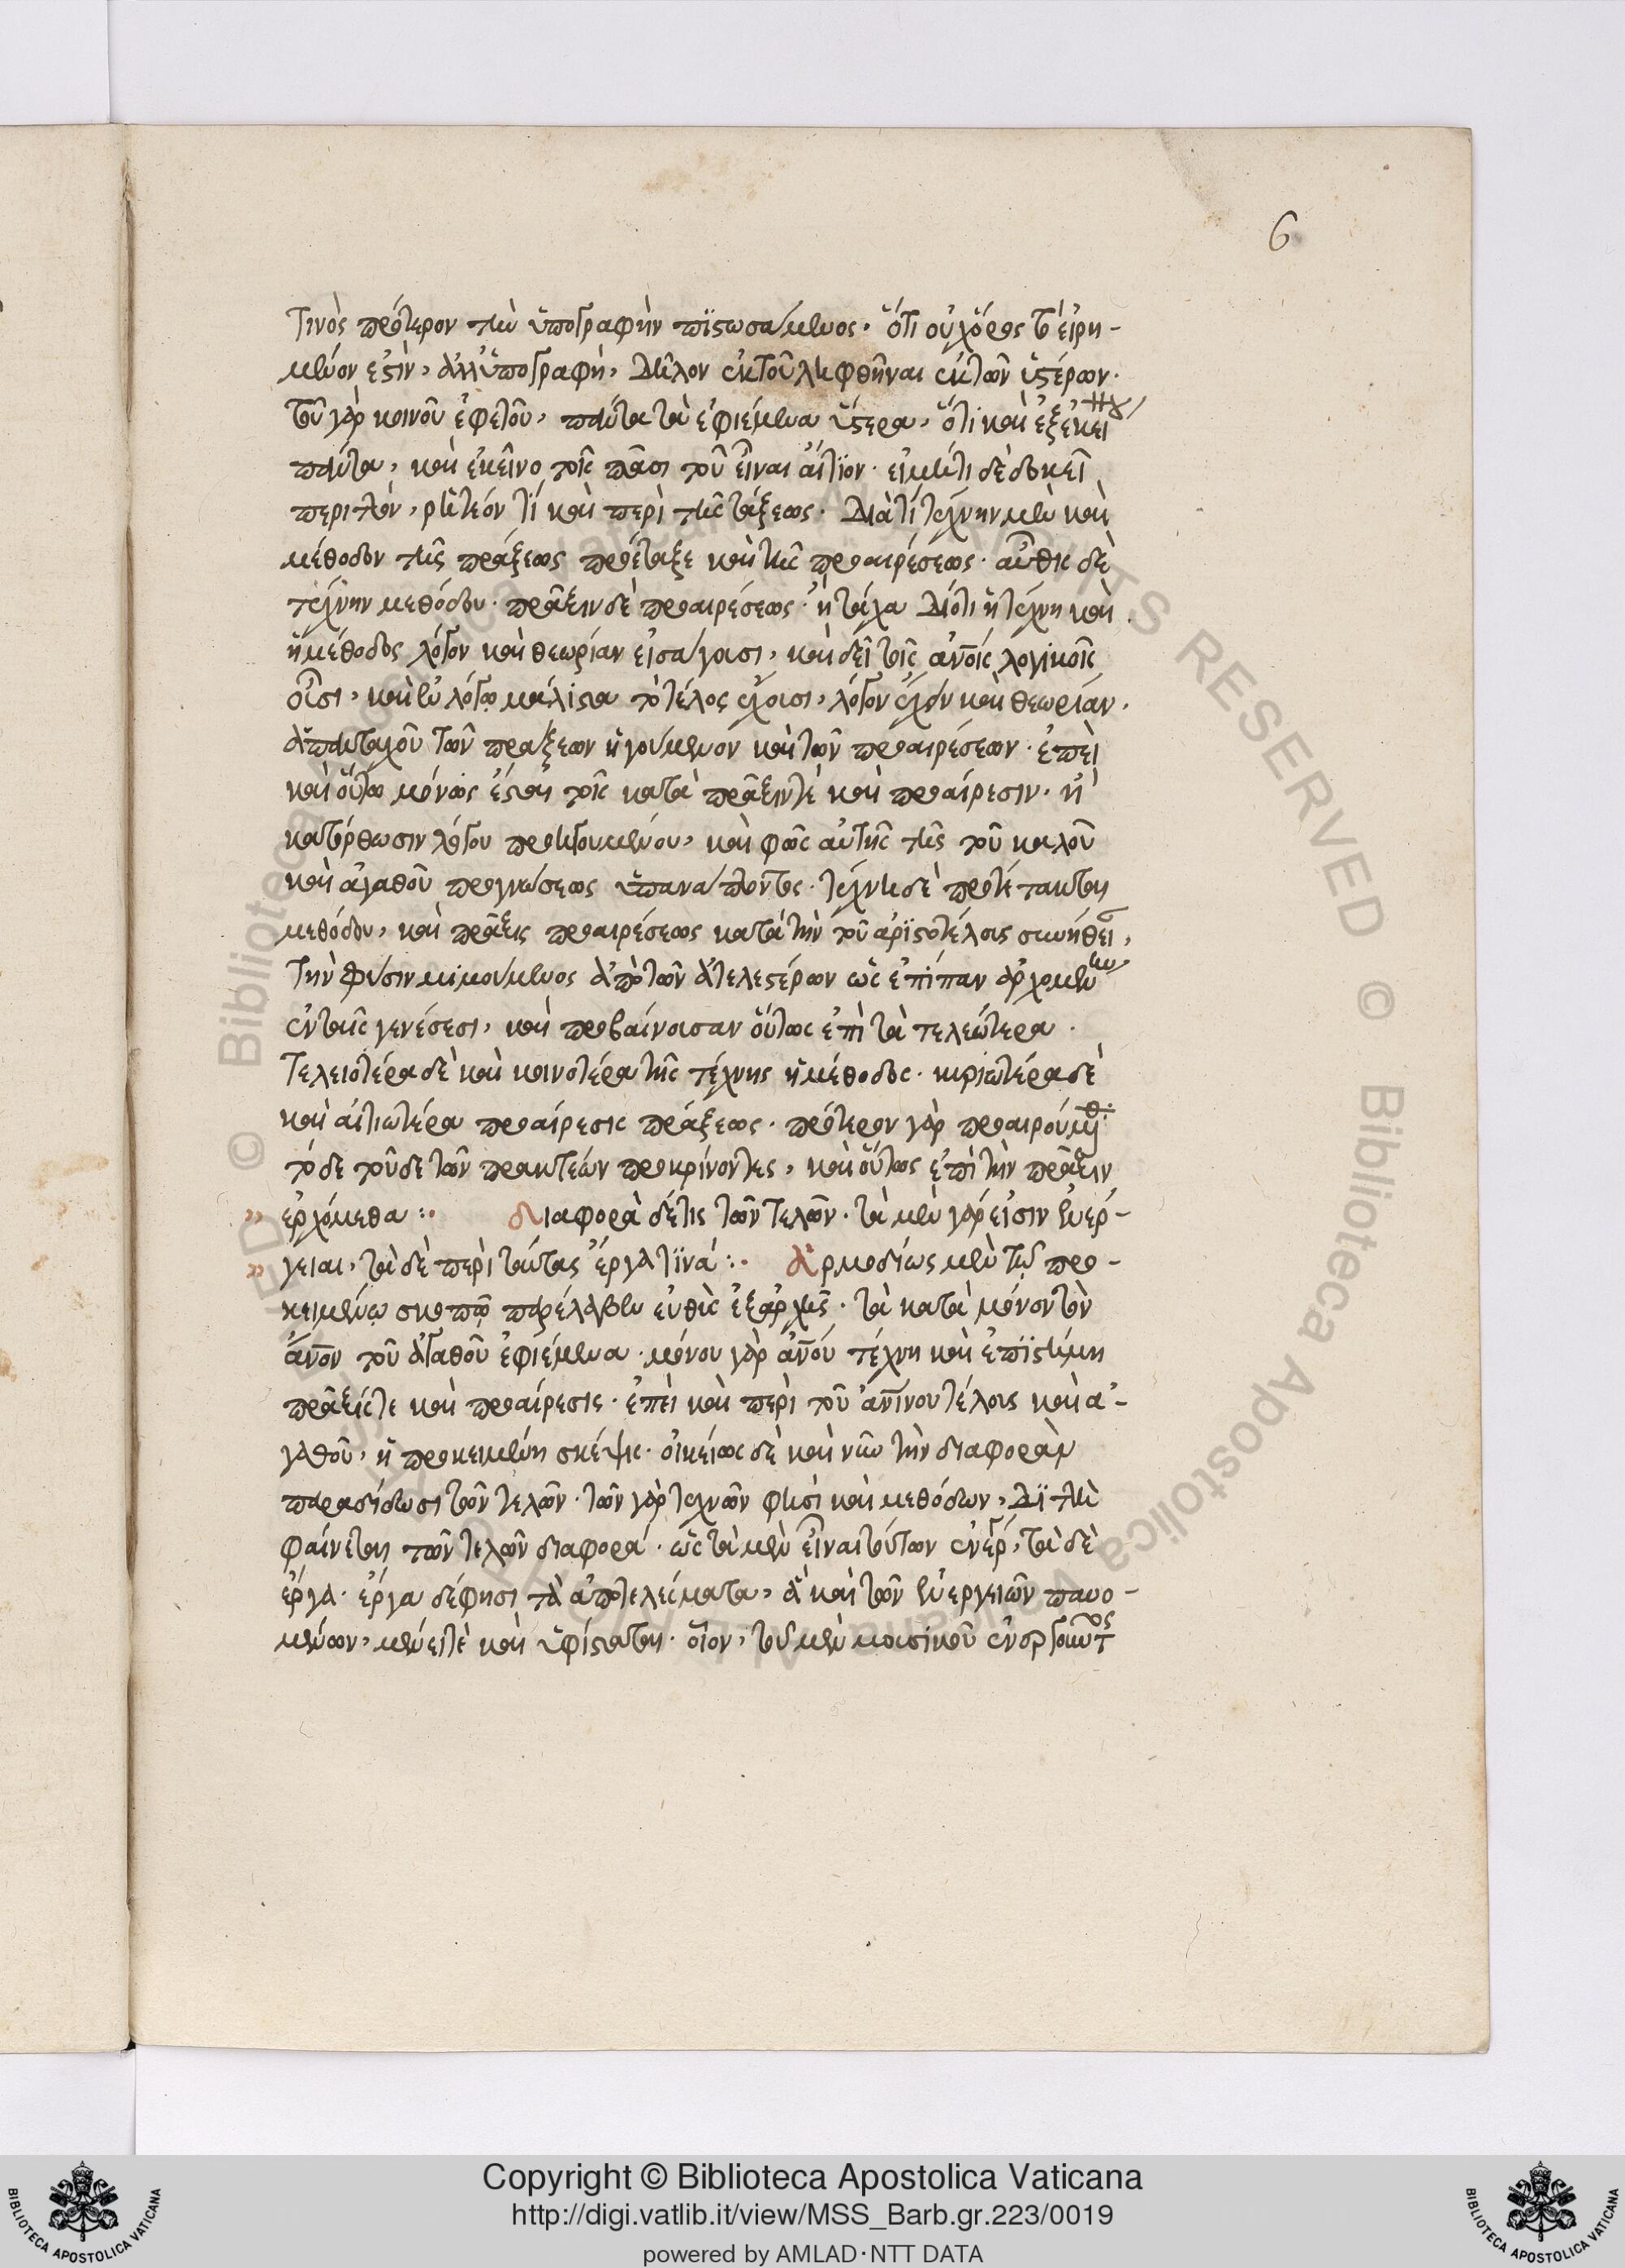 6
τινὸς πρότερον τὴν ὑπογραφὴν πιστωσάμενος. ὅτι οὐχ ὅρος τὸ εἰρη-
μένον ἐστὶν, ἀλλ' ὑπογραφὴ, δῆλον ἐκ τοῦ ληφθῆναι ἐκ τῶν ὑστέρων.
τοῦ γὰρ κοινοῦ ἐφετοῦ, πάντα τὰ ἐφιέμενα ὕστερα, ὅτι καὶ ἐξ ἐκεί
πάντα, καὶ ἐκεῖνο τοῖς πᾶσι τοῦ εἶναι αἴτιον. εἰ μή τι δὲ δοκεῖ
περιττόν, ῥητέον τί καὶ περὶ τῆς τάξεως. διὰ τί τέχνην μὲν καὶ
μέθοδον τῆς πράξεως προέταξε καὶ τῆς προαιρέσεως. αὖθις δὲ
τέχνην μεθόδου. πρᾶξιν δὲ προαιρέσεως. ἢ τάχα διότι ἡ τέχνη καὶ
ἡ μέθοδος λόγον καὶ θεωρίαν εἰσάγουσι, καὶ δεῖ τοῖς ἀνοις λογικοῖς
οὖσι, καὶ ἐν λόγῳ μάλιστα τὸ τέλος ἔχουσι, λόγον ἔχειν καὶ θεωρίαν.
ἁπανταχοῦ τῶν πράξεων ἡγούμενον καὶ τῶν προαιρέσεων. ἐπεὶ
καὶ οὕτω μόνως ἔσται τοῖς κατὰ πρᾶξιν τὲ καὶ προαίρεσιν. ἡ
κατόρθωσιν λόγου προηγουμένου, καὶ φῶς αὐτῆς τῆς τοῦ καλοῦ
καὶ ἀγαθοῦ προγνώσεως ὑπανάπτοντος. τέχνη δὲ προτέτακται
μεθόδου, καὶ πρᾶξις προαιρέσεως κατὰ τὴν τοῦ ἀριστοτέλους συνήθει,
τὴν φύσιν μιμούμενος ἀπὸ τῶν ἀτελεστέρων ὡς ἐπίπαν ἀρχομένην
ἐν ταῖς γενέσεσι, καὶ προβαίνουσαν οὕτως ἐπὶ τὰ τελεώτερα.
τελειοτέρα δὲ καὶ κοινοτέρα τῆς τέχνης ἡ μέθοδος. κυριωτέρα δὲ
καὶ αἰτιωτέρα προαίρεσις πράξεως. πρότερον γὰρ προαιρούμεθα
τόδε τοῦδε τῶν πρακτέων προκρίνοντες, καὶ οὕτως ἐπὶ τὴν πρᾶξιν
» ἐρχόμεθα :· διαφορὰ δέ τις τῶν τελῶν. τὰ μὲν γάρ εἰσιν ἐνέρ-
» γειαι, τὰ δὲ περὶ ταύτας ἔργα τινά :· ἁρμοδίως μὲν τῷ προ-
κειμένῳ σκοπῷ παρέλαβεν εὐθὺς ἐξαρχῆς. τὰ κατὰ μόνον τὸν
ἄνον τοῦ ἀγαθοῦ ἐφιέμενα. μόνου γὰρ ἀνου τέχνη καὶ ἐπιστήμη
πρᾶξίς τε καὶ προαίρεσις. ἐπεὶ καὶ περὶ τοῦ ἀνίνου τέλους καὶ ἀ-
γαθοῦ, ἡ προκειμένη σκέψις. οἰκείως δὲ καὶ νῦν τὴν διαφορὰν
παραδίδωσι τῶν τελῶν. τῶν γὰρ τεχνῶν φησὶ καὶ μεθόδων, δι' ἣν
φαίνεται τῶν τελῶν διαφορά. ὡς τὰ μὲν εἶναι τούτων ἐνέρ, τὰ δὲ
ἔργα. ἔργα δέ φησι τὰ ἀποτελέσματα, ἃ καὶ τῶν ἐνεργειῶν παυο-
μένων, μένει τὲ καὶ ὑφίσταται. οἷον, τοῦ μὲν μουσικοῦ ἐνεργοῦντος
Copyright © Biblioteca Apostolica Vaticana
http://digi.vatlib.it/view/MSS_Barb.gr.223/0019
powered by AMLAD·NTT DATA